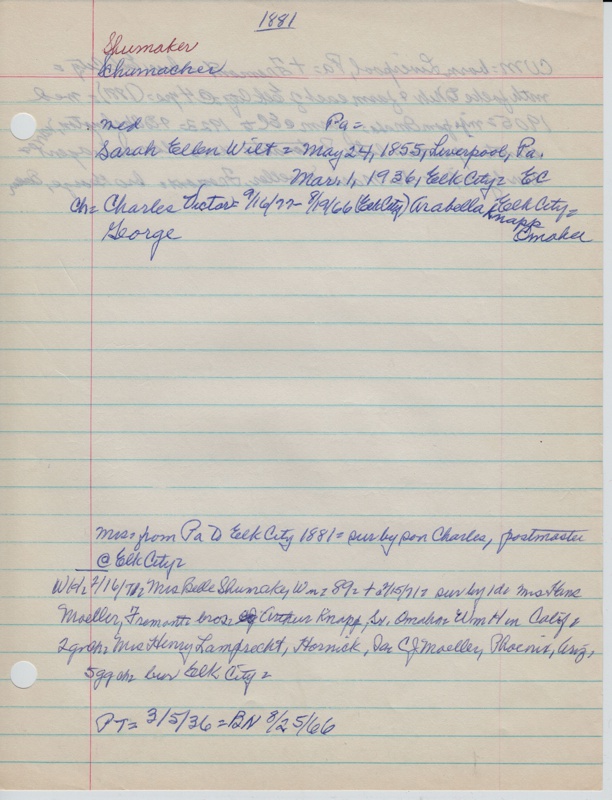 1881
Shumaker
Schumacher
med Pa =
Sarah Ellen Wilt = May 24, 1855, Liverpool, Pa.
Mar. 1, 1936, Elk City = EC
Ch = Charles Victor = 9/16/77 - 8/19/66 (Elk City) Arabella Knapp Elk City =
George Omaha
Mrs = from Pa to Elk City 1881 = sur by son Charles, postmaster
@ Elk City =
Mrs Belle Shumaker, Wm = 89 = + sur by 1 da Mrs Hans
Moeller, Fremont = bros: Arthur Knapp, Sr. Omaha = Wm H in Calif =
2 gr ch = Mrs Henry Lamprecht, Hornick, Ia = CJ Moeller, Phoenix, Ariz,
5 gg ch = bur Elk City =
PT = 3/5/36 = BN 8/25/66